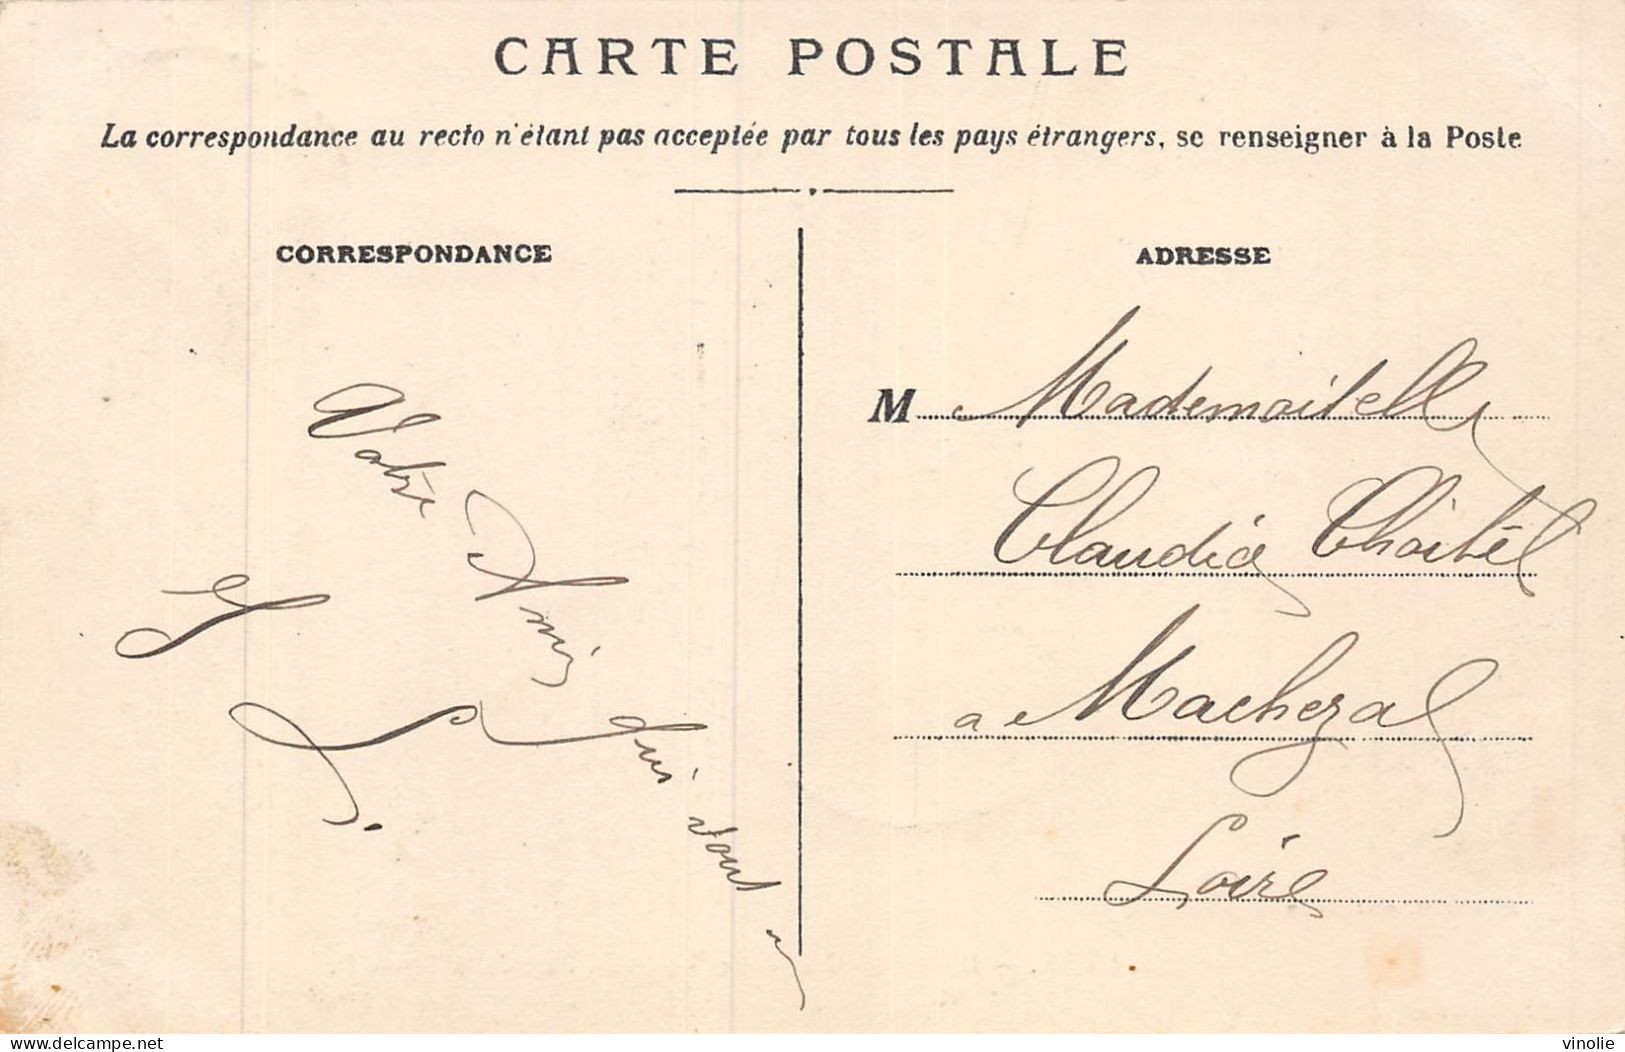 CARTE POSTALE
La correspondance au recto n'étant pas acceptée par tous les pays étrangers, se renseigner à la Poste
CORRESPONDANCE
Votre Ami
ADRESSE
M Mademoiselle
Claudia Châtel
a Machezal
Loire
delcampe.net
vinolie